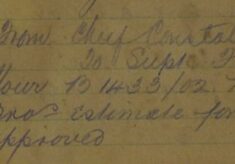 From Chief Constab
20 Sept
Your B 1433/02.
Estimate for
approved